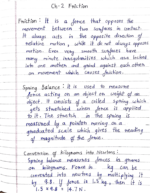 Ch-2 Friction
Friction: It is a force that opposes the
movement between two surfaces in contact.
It always acts in the opposite direction of
relative motion, while it do not always oppose
motion. Even very smooth surfaces have
many minute irregularities which are locked
into one another and grind against each others
on movement which causes friction.
Spring Balance: It is used to measure
force acting on an object or weight of an
object. It consists of a coiled spring which
gets stretched when force is applied
to it. The stretch in the spring is
measured by a pointer moving on a
graduated scale which gives the reading
of magnitude of the force.
Conversion of kilograms into newtons:
Spring balance measures force in grams
or kilograms. Force in kg can be
converted into newtons by multiplying it
by 9.8. If force is 1.5 kg, then it is
1.5 × 9.8 = 14.7 N.